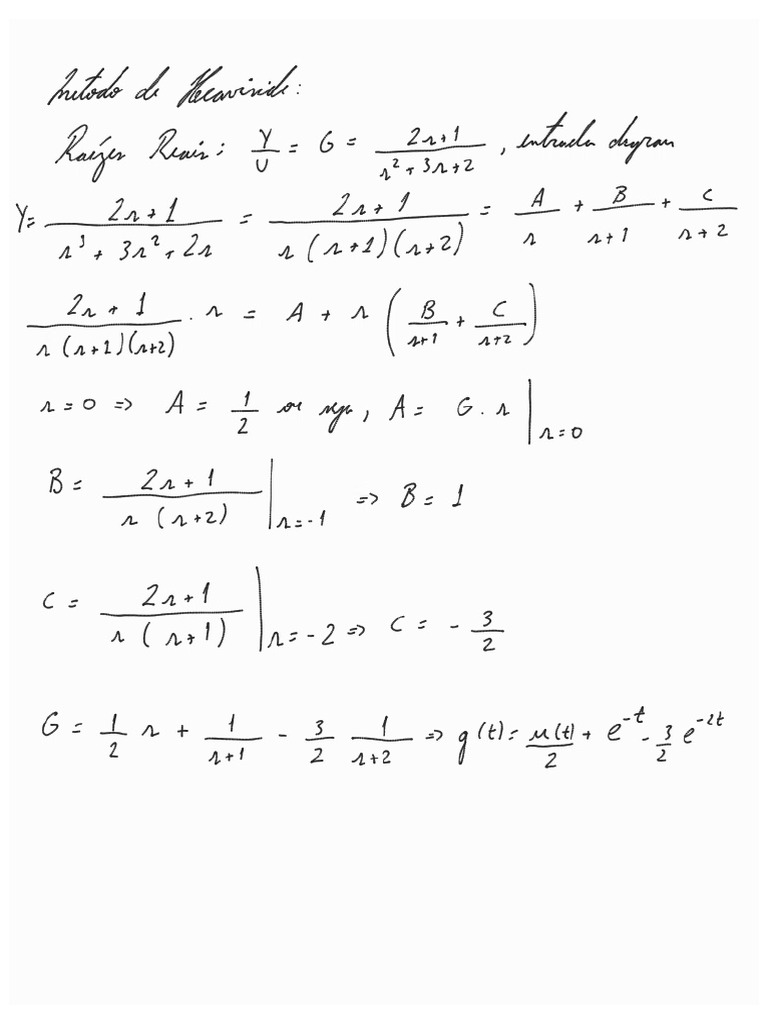 Metodo de Heaviside:
Raízes Reais: Y/U = G = (2s+1)/(s²+3s+2), entrada degrau
Y = (2s+1)/(s³+3s²+2s) = (2s+1)/(s(s+1)(s+2)) = A/s + B/(s+1) + C/(s+2)
(2s+1)/(s(s+1)(s+2)) . s = A + s (B/(s+1) + C/(s+2))
s=0 => A = 1/2 ou seja, A = G.s |s=0
B = (2s+1)/(s(s+2)) |s=-1 => B = 1
C = (2s+1)/(s(s+1)) |s=-2 => C = -3/2
G = 1/2 s + 1/(s+1) - 3/2 1/(s+2) => g(t) = u(t)/2 + e^-t - 3/2 e^-2t